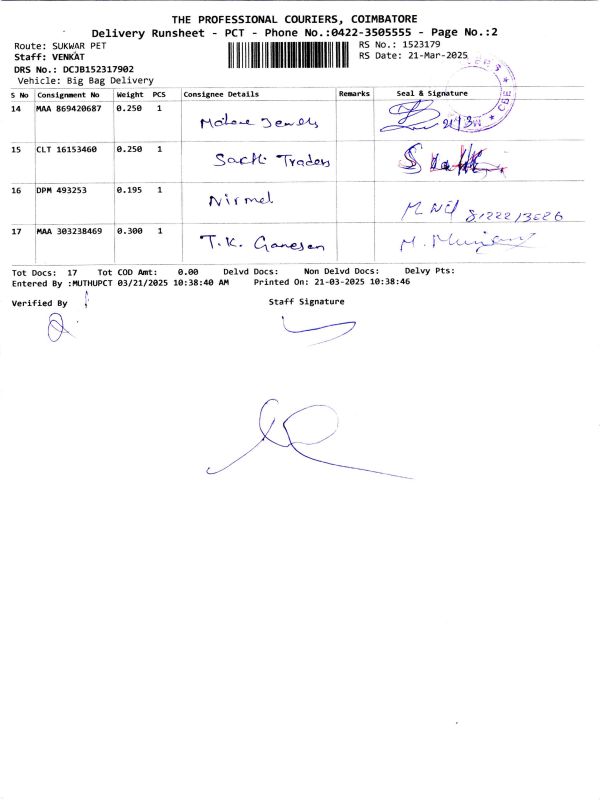 THE PROFESSIONAL COURIERS, COIMBATORE
Delivery Runsheet - PCT - Phone No.:0422-3505555 - Page No.:2
Route: SUKWAR PET
RS No.: 1523179
Staff: VENKAT
RS Date: 21-Mar-2025
DRS No.: DCJB152317902
Vehicle: Big Bag Delivery
S No Consignment No Weight PCS Consignee Details Remarks Seal & Signature
14 MAA 869420687 0.250 1 Jewels 21/3
15 CLT 16153460 0.250 1 Sacti Traders
16 DPM 493253 0.195 1 Nirmel
17 MAA 303238469 0.300 1 T.K. Ganesan
Tot Docs: 17 Tot COD Amt: 0.00 Delvd Docs: Non Delvd Docs: Delvy Pts:
Entered By :MUTHUPCT 03/21/2025 10:38:40 AM Printed On: 21-03-2025 10:38:46
Verified By Staff Signature
CBE